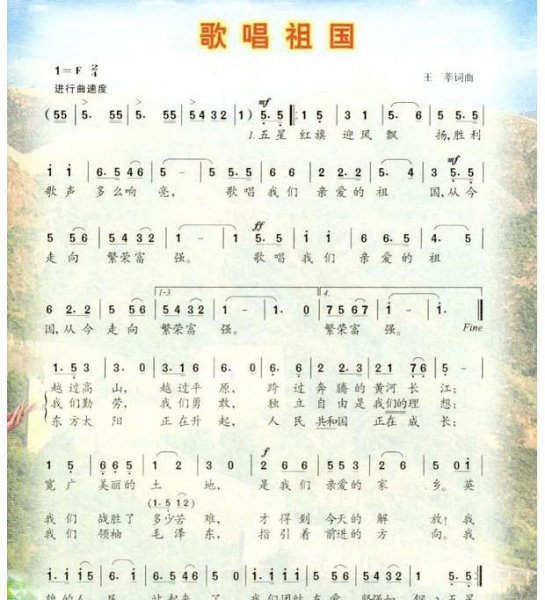 歌唱祖国
1=F 2/4
进行曲速度
王 莘词曲
(55 | 5. 55 | 5. 55 | 5432 | 1) 5. 5 |: 1 5 | 3 1 | 5. 6 | 5 5. 5 |
mf
1.五星 红旗 迎风 飘 扬,胜利
i i | 6. 5 4 6 | 5 - | 5 5. 5 | 6 6 | 2. 2. | 5 4 | 3 5. 5 |
mf
歌声 多么响 亮, 歌唱 我们 亲爱的 祖 国,从今
5 5 6 | 5 4 3 2 | 1 - | 1 5. 5 | i i | 6. 6 5 6 | 4. 5 |
ff
走向 繁荣富 强。 歌唱 我们 亲爱的 祖
1-3. 4.
6 2. 2 | 5 5 6 | 5432 | 1 - | 1 0 | 7567 | 1 - | 1 0
国,从今 走向 繁荣富 强。 繁荣富 强。 Fine
1. 5 3 | 2. 0 | 3. 1 6 | 6. 0 | 6 2 | 2 2. 3 | 2 1 7 6 | 5. 0
越过高 山, 越过平 原, 跨过 奔腾的 黄河长 江;
我们勤 劳, 我们勇 敢, 独立 自由是 我们的理 想;
东方太 阳 正在升 起, 人民 共和国 正在成 长;
1 5 | 6 6. | 1 2 | 3 0 | 2 6 6 | 5 6 6 | 1 2 | 5 0 i
f
宽广 美丽的 土 地, 是我们 亲爱的 家 乡。英
(1. 5 1 2)
我们 战胜了 多少苦 难, 才得到 今天的 解 放!我
我们 领袖 毛泽 东, 指引着 前进的 方 向。我